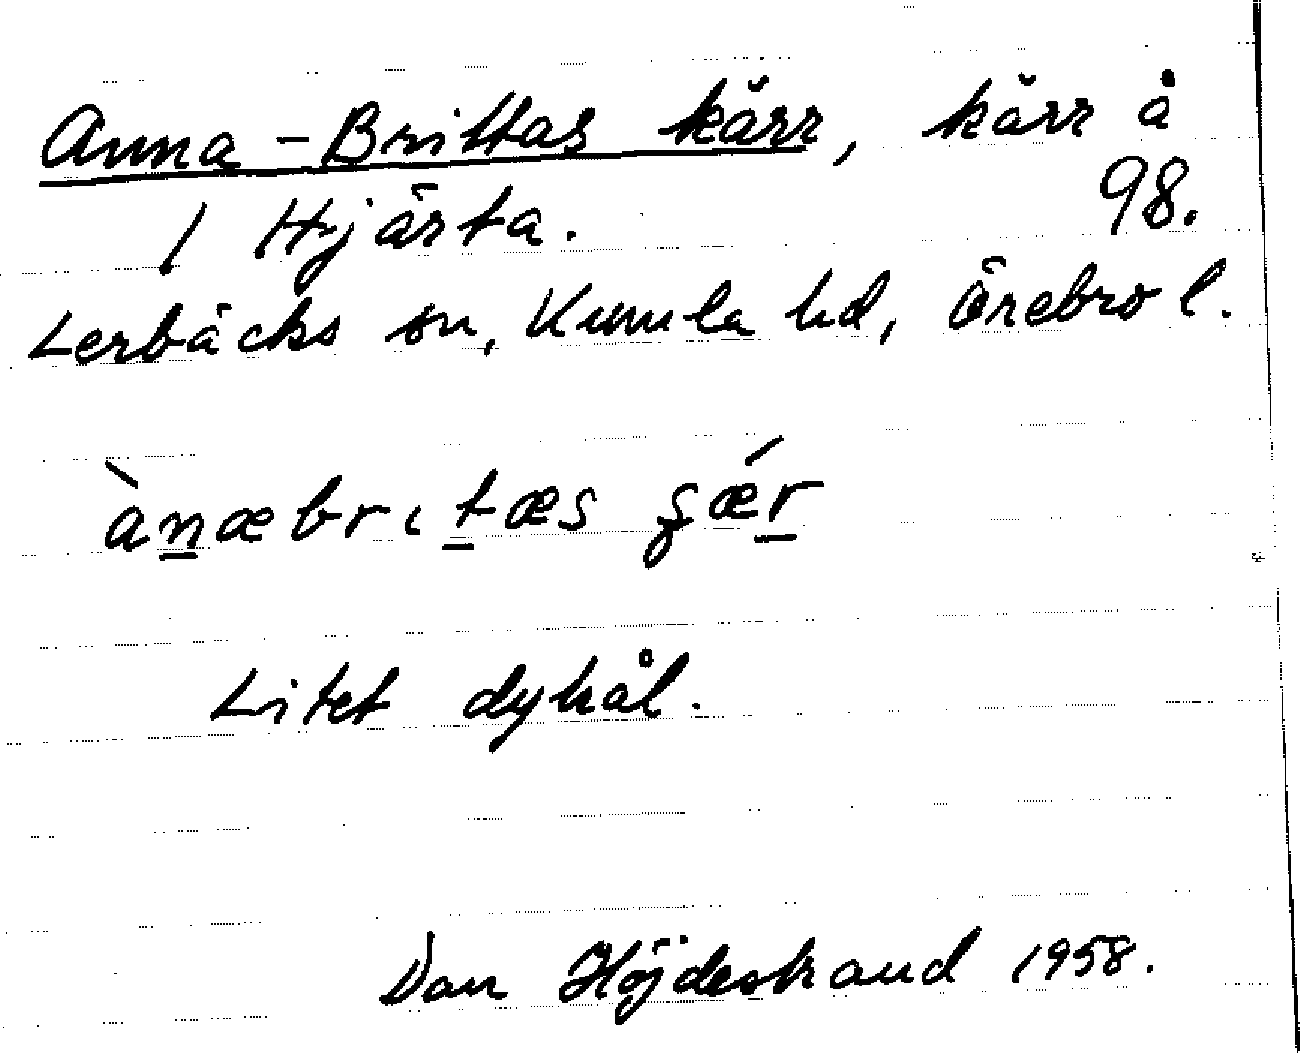 Anna-Brittas kärr, kärr å
/ Hjärta. 98.
Lerbäcks sn, Kumla hd, Örebro l.
ànæbrɩtæs ʂǽr
Litet dyhål.
Dan Höjdestrand 1958.